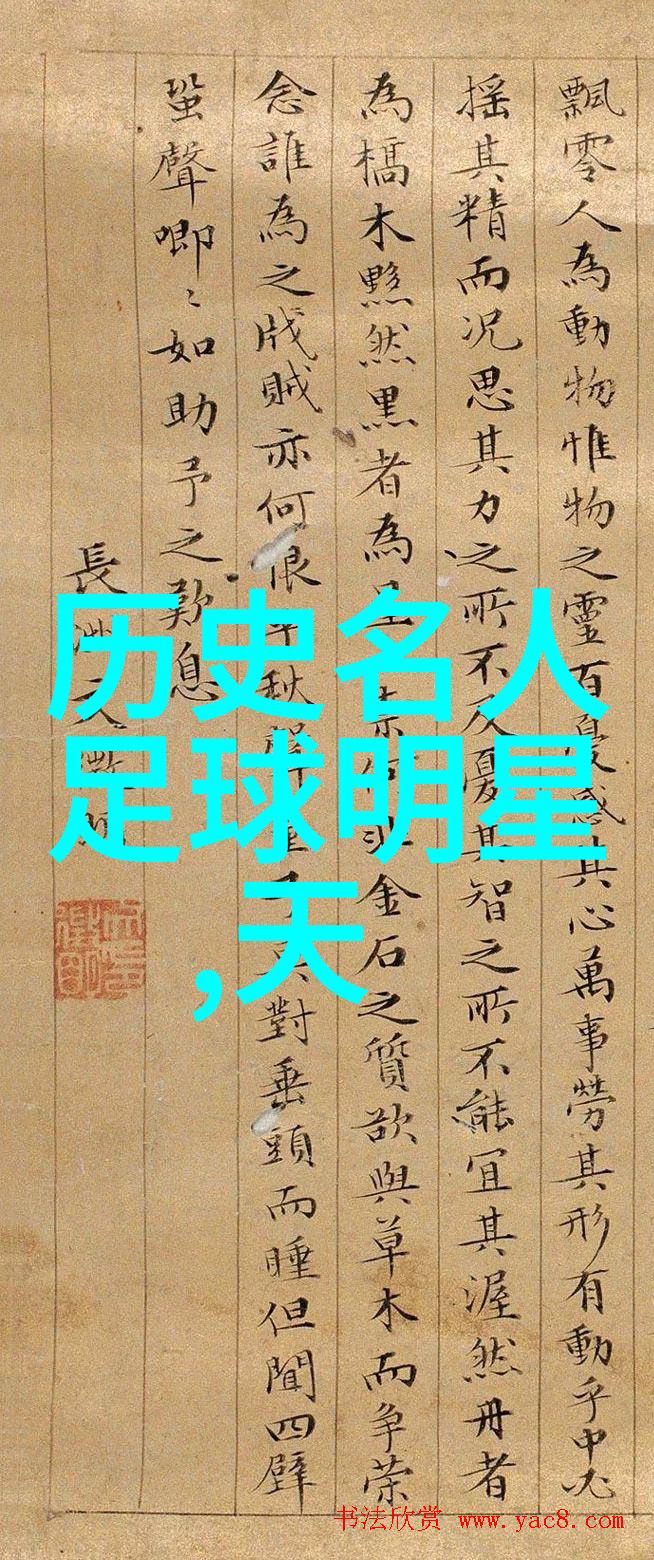 飄零人為動物惟物之靈百憂感其心萬事勞其形有動乎中必
搖其精而况思其力之所不及憂其智之所不能宜其渥然丹者
為槁木黟然黒者為星奈何非金石之質欲與草木而争荣
念誰為之戕賊亦何恨乎秋聲童子莫對垂頭而睡但聞四壁
蛩聲唧〻如助予之歎息
長洲文徵明
历史名人
足球明星
,天
书法欣赏 www.yac8.com